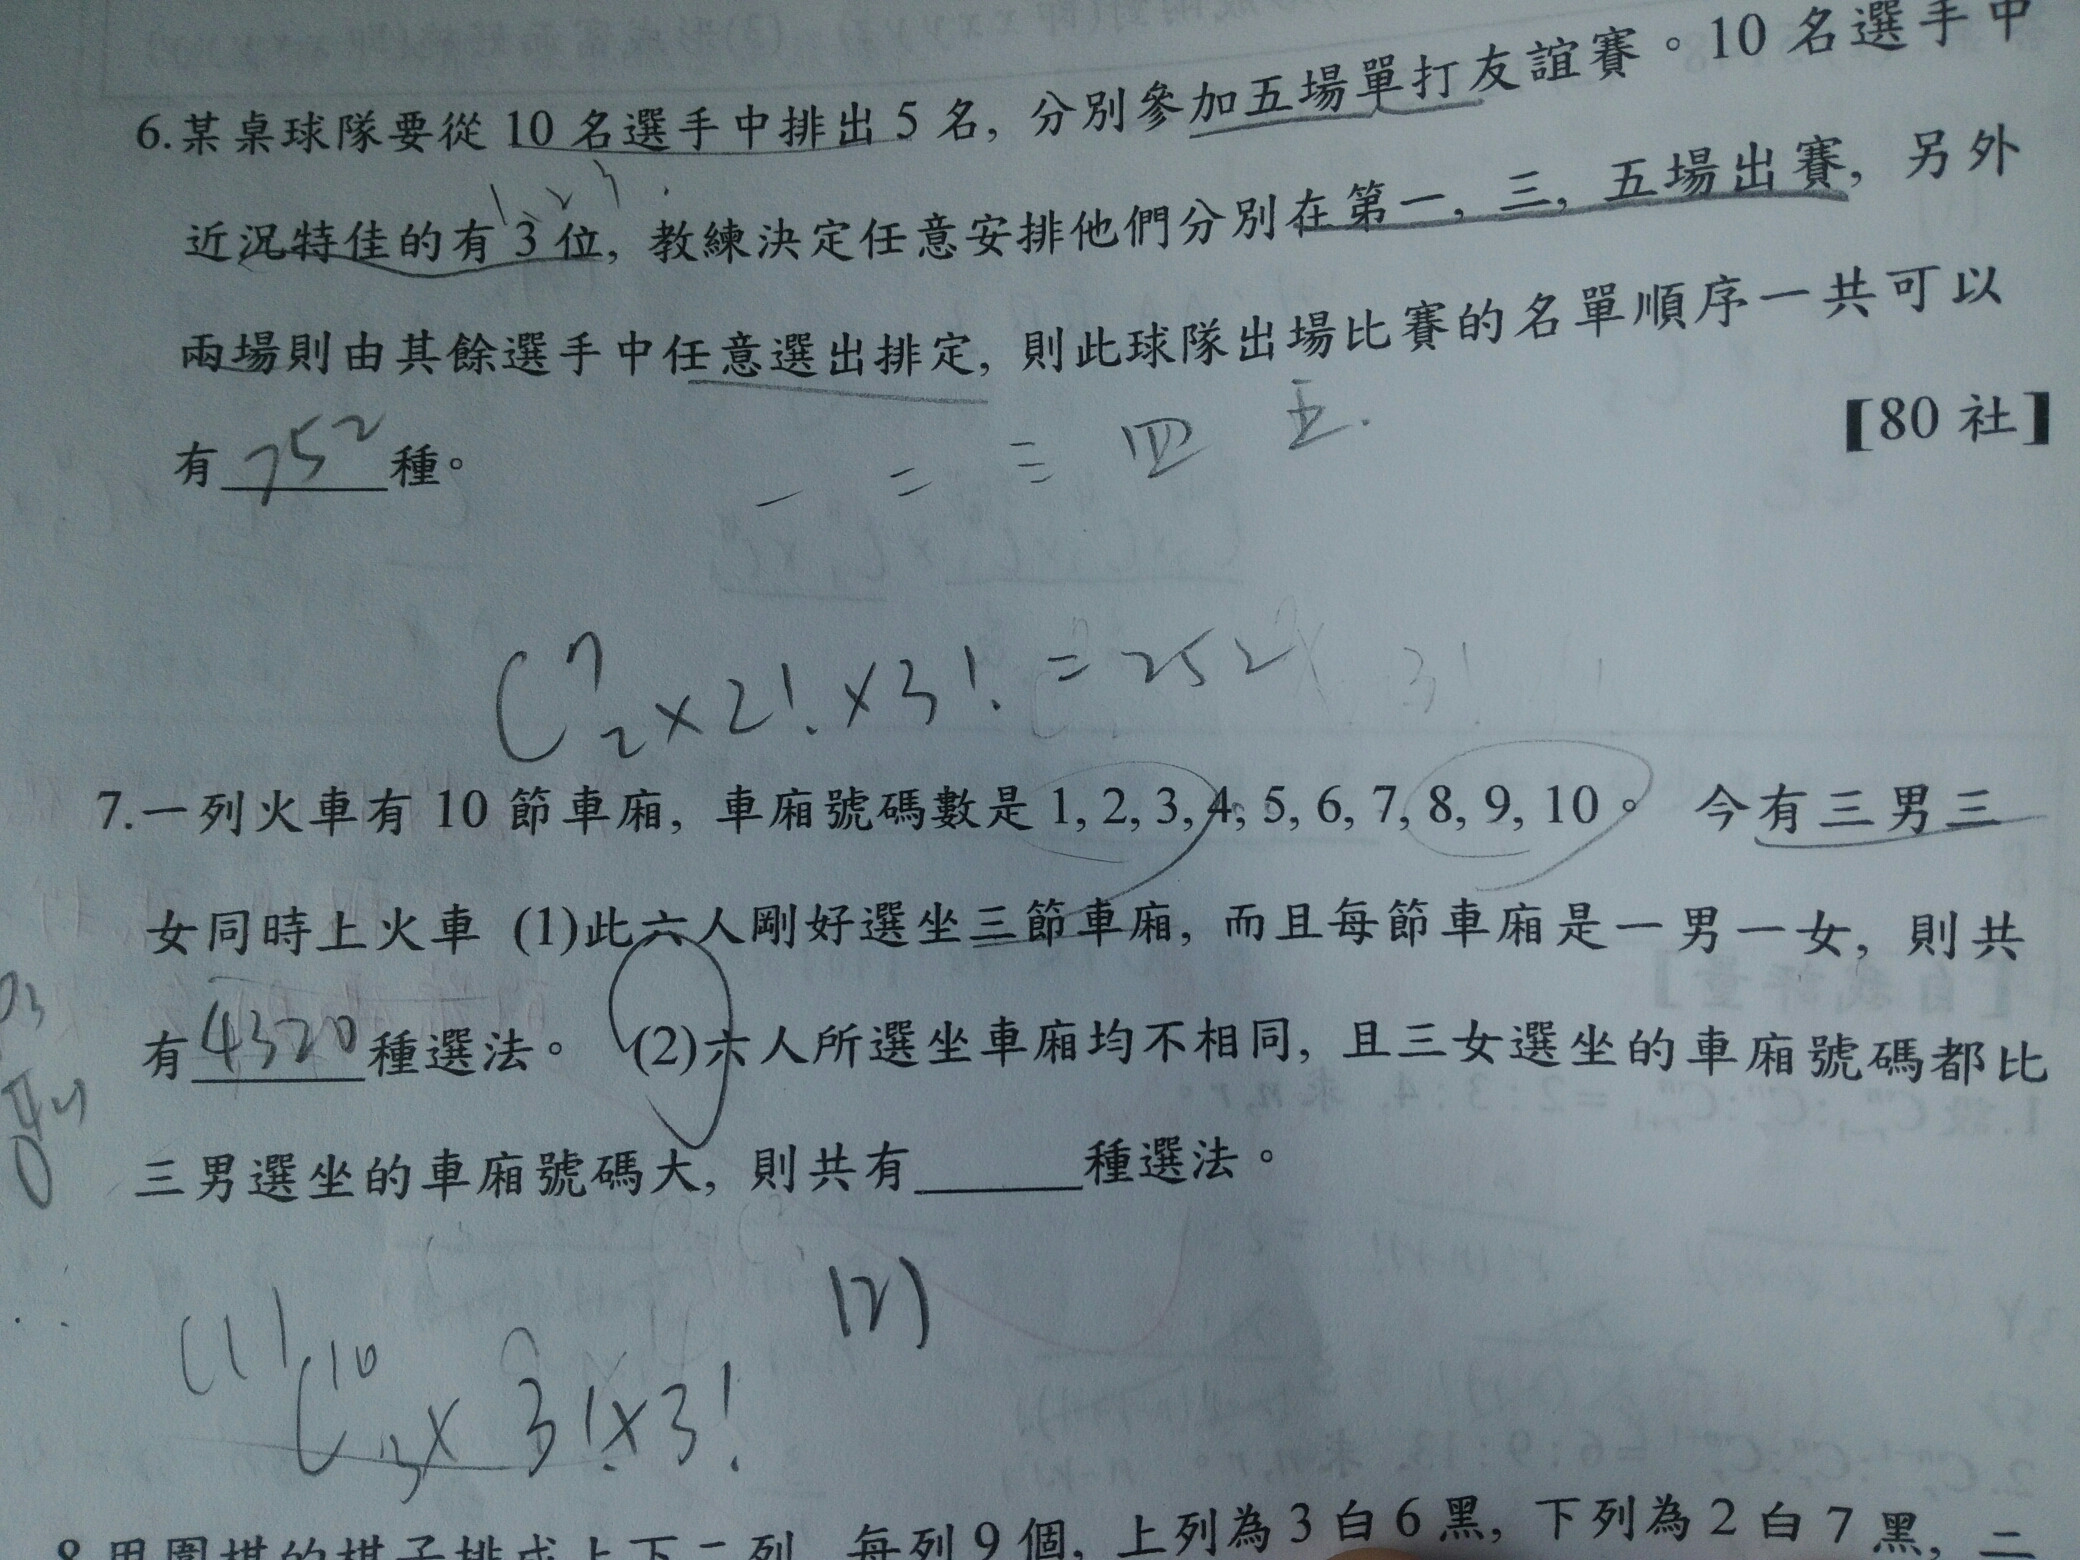 6.某桌球隊要從 10 名選手中排出 5 名, 分別參加五場單打友誼賽。10 名選手中
近況特佳的有 3 位, 教練決定任意安排他們分別在第一, 三, 五場出賽, 另外
兩場則由其餘選手中任意選出排定, 則此球隊出場比賽的名單順序一共可以
有 252 種。
【80 社】
一 二 三 四 五
C⁷₂ × 2! × 3! = 252
7.一列火車有 10 節車廂, 車廂號碼數是 1, 2, 3, 4, 5, 6, 7, 8, 9, 10。 今有三男三
女同時上火車 (1)此六人剛好選坐三節車廂, 而且每節車廂是一男一女, 則共
有 4320 種選法。 (2)六人所選坐車廂均不相同, 且三女選坐的車廂號碼都比
三男選坐的車廂號碼大, 則共有______種選法。
(1) C¹⁰₃ × 3! × 3!
(2)
8.用圍棋的棋子排成上下二列, 每列 9 個, 上列為 3 白 6 黑, 下列為 2 白 7 黑, 二